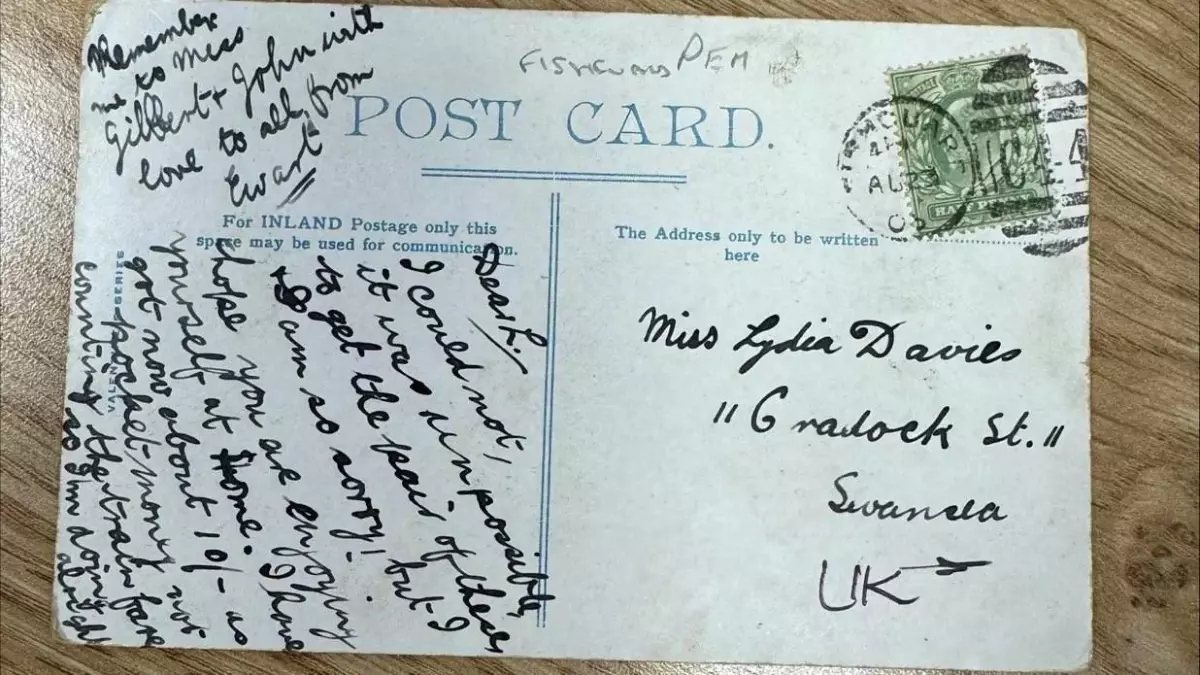 Remember
me to Miss
Gilbert & John with
love to all from
Ewart
FISHGUARD PEM
POST CARD.
FISHGUARD
AU 23
HALFPENNY
For INLAND Postage only this
space may be used for communication.
The Address only to be written
here
Dear L.,
I could not,
it was unpossible,
to get the pair of these
but I
& am so sorry! I
hope you are enjoying
yourself at home. I have
got now about 10/- as
pocket-money not
counting the train fare
so I'm doing
alright
VALENTINES SERIES
Miss Lydia Davies
"Cradock St."
Swansea
UK